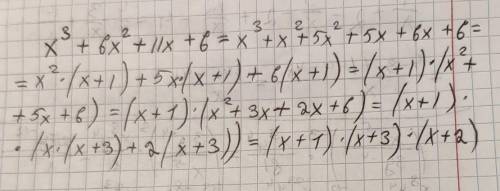 x³ + 6x² + 11x + 6 = x³ + x² + 5x² + 5x + 6x + 6 =
= x² · (x+1) + 5x · (x+1) + 6(x+1) = (x+1) · (x² +
+ 5x + 6) = (x+1) · (x² + 3x + 2x + 6) = (x+1) ·
· (x · (x+3) + 2(x+3)) = (x+1) · (x+3) · (x+2)